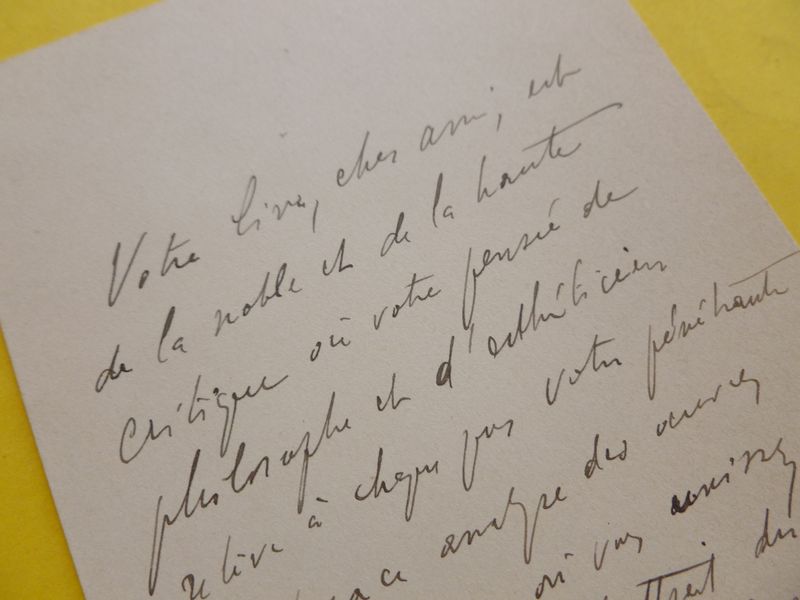 Votre livre, cher ami, est
de la noble et de la haute
critique où votre pensée de
philosophe et d'esthéticien
relive à chaque pas votre pénétrante
analyse des œuvres
où vous
du